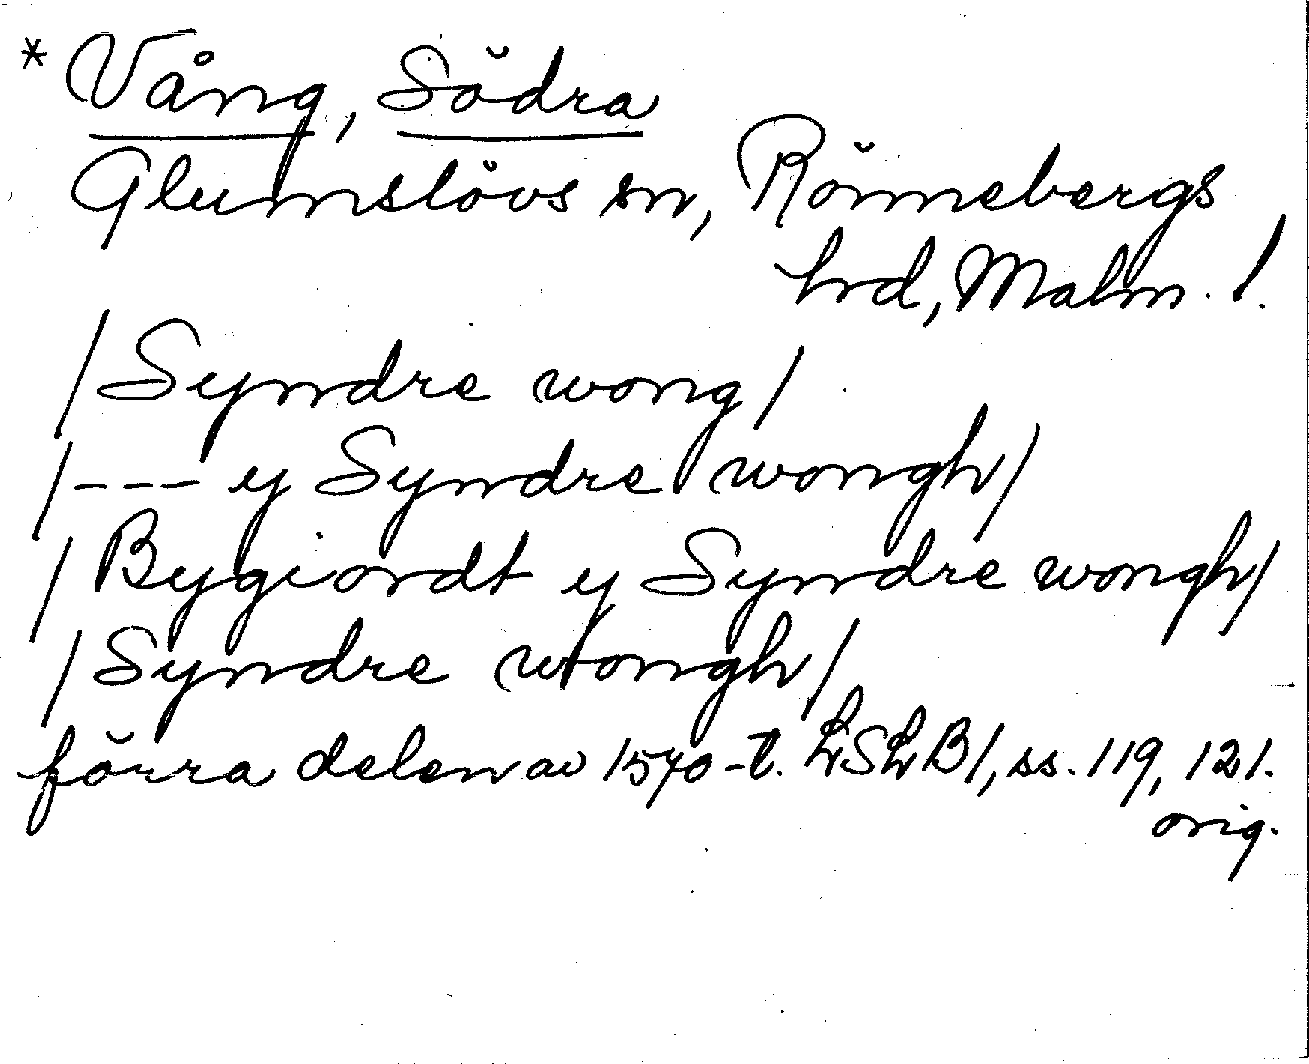 * Vång, Södra
Glumslövs sn, Rönnebergs
hrd, Malm. l.
/Syndre wong/
/--- y Syndre wongh/
/Bygiordt y Syndre wongh/
/Syndre wongh/
förra delen av 1570-t. LSLB1, ss. 119, 121.
orig.